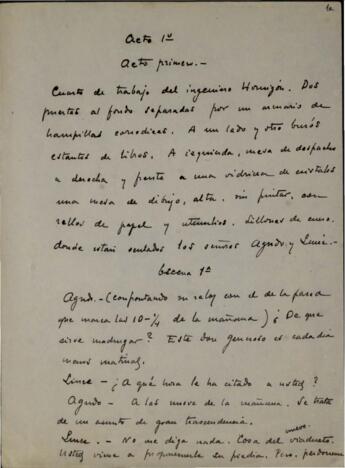 1a
Acto 1º
Acto primero.-
Cuarto de trabajo del ingeniero Hormigón. Dos
puertas al fondo separadas por un armario de
trampillas corredizas. A un lado y otro burós
estantes de libros. A izquierda, mesa de despacho
a derecha y frente a una vidriera de cristales
una mesa de dibujo, alta, sin pintar, con
rollos de papel y utensilios. Sillones de cuero,
donde estan sentados los señores Agudo y Lince.-
Escena 1ª
Agudo.- (confrontando su reloj con el de la pared
que marca las 10-¼ de la mañana) ¿De que
sirve madrugar? Este don Generoso es cada dia
menos matinal.
Lince.- ¿A qué hora le ha citado a usted?
Agudo- A las nueve de la mañana. Se trata
de un asunto de gran trascendencia.
Lince.- No me diga nada. Cosa del nuevo viaducto.
Usted viene a proponerle su piedra. Pero, perdoneme